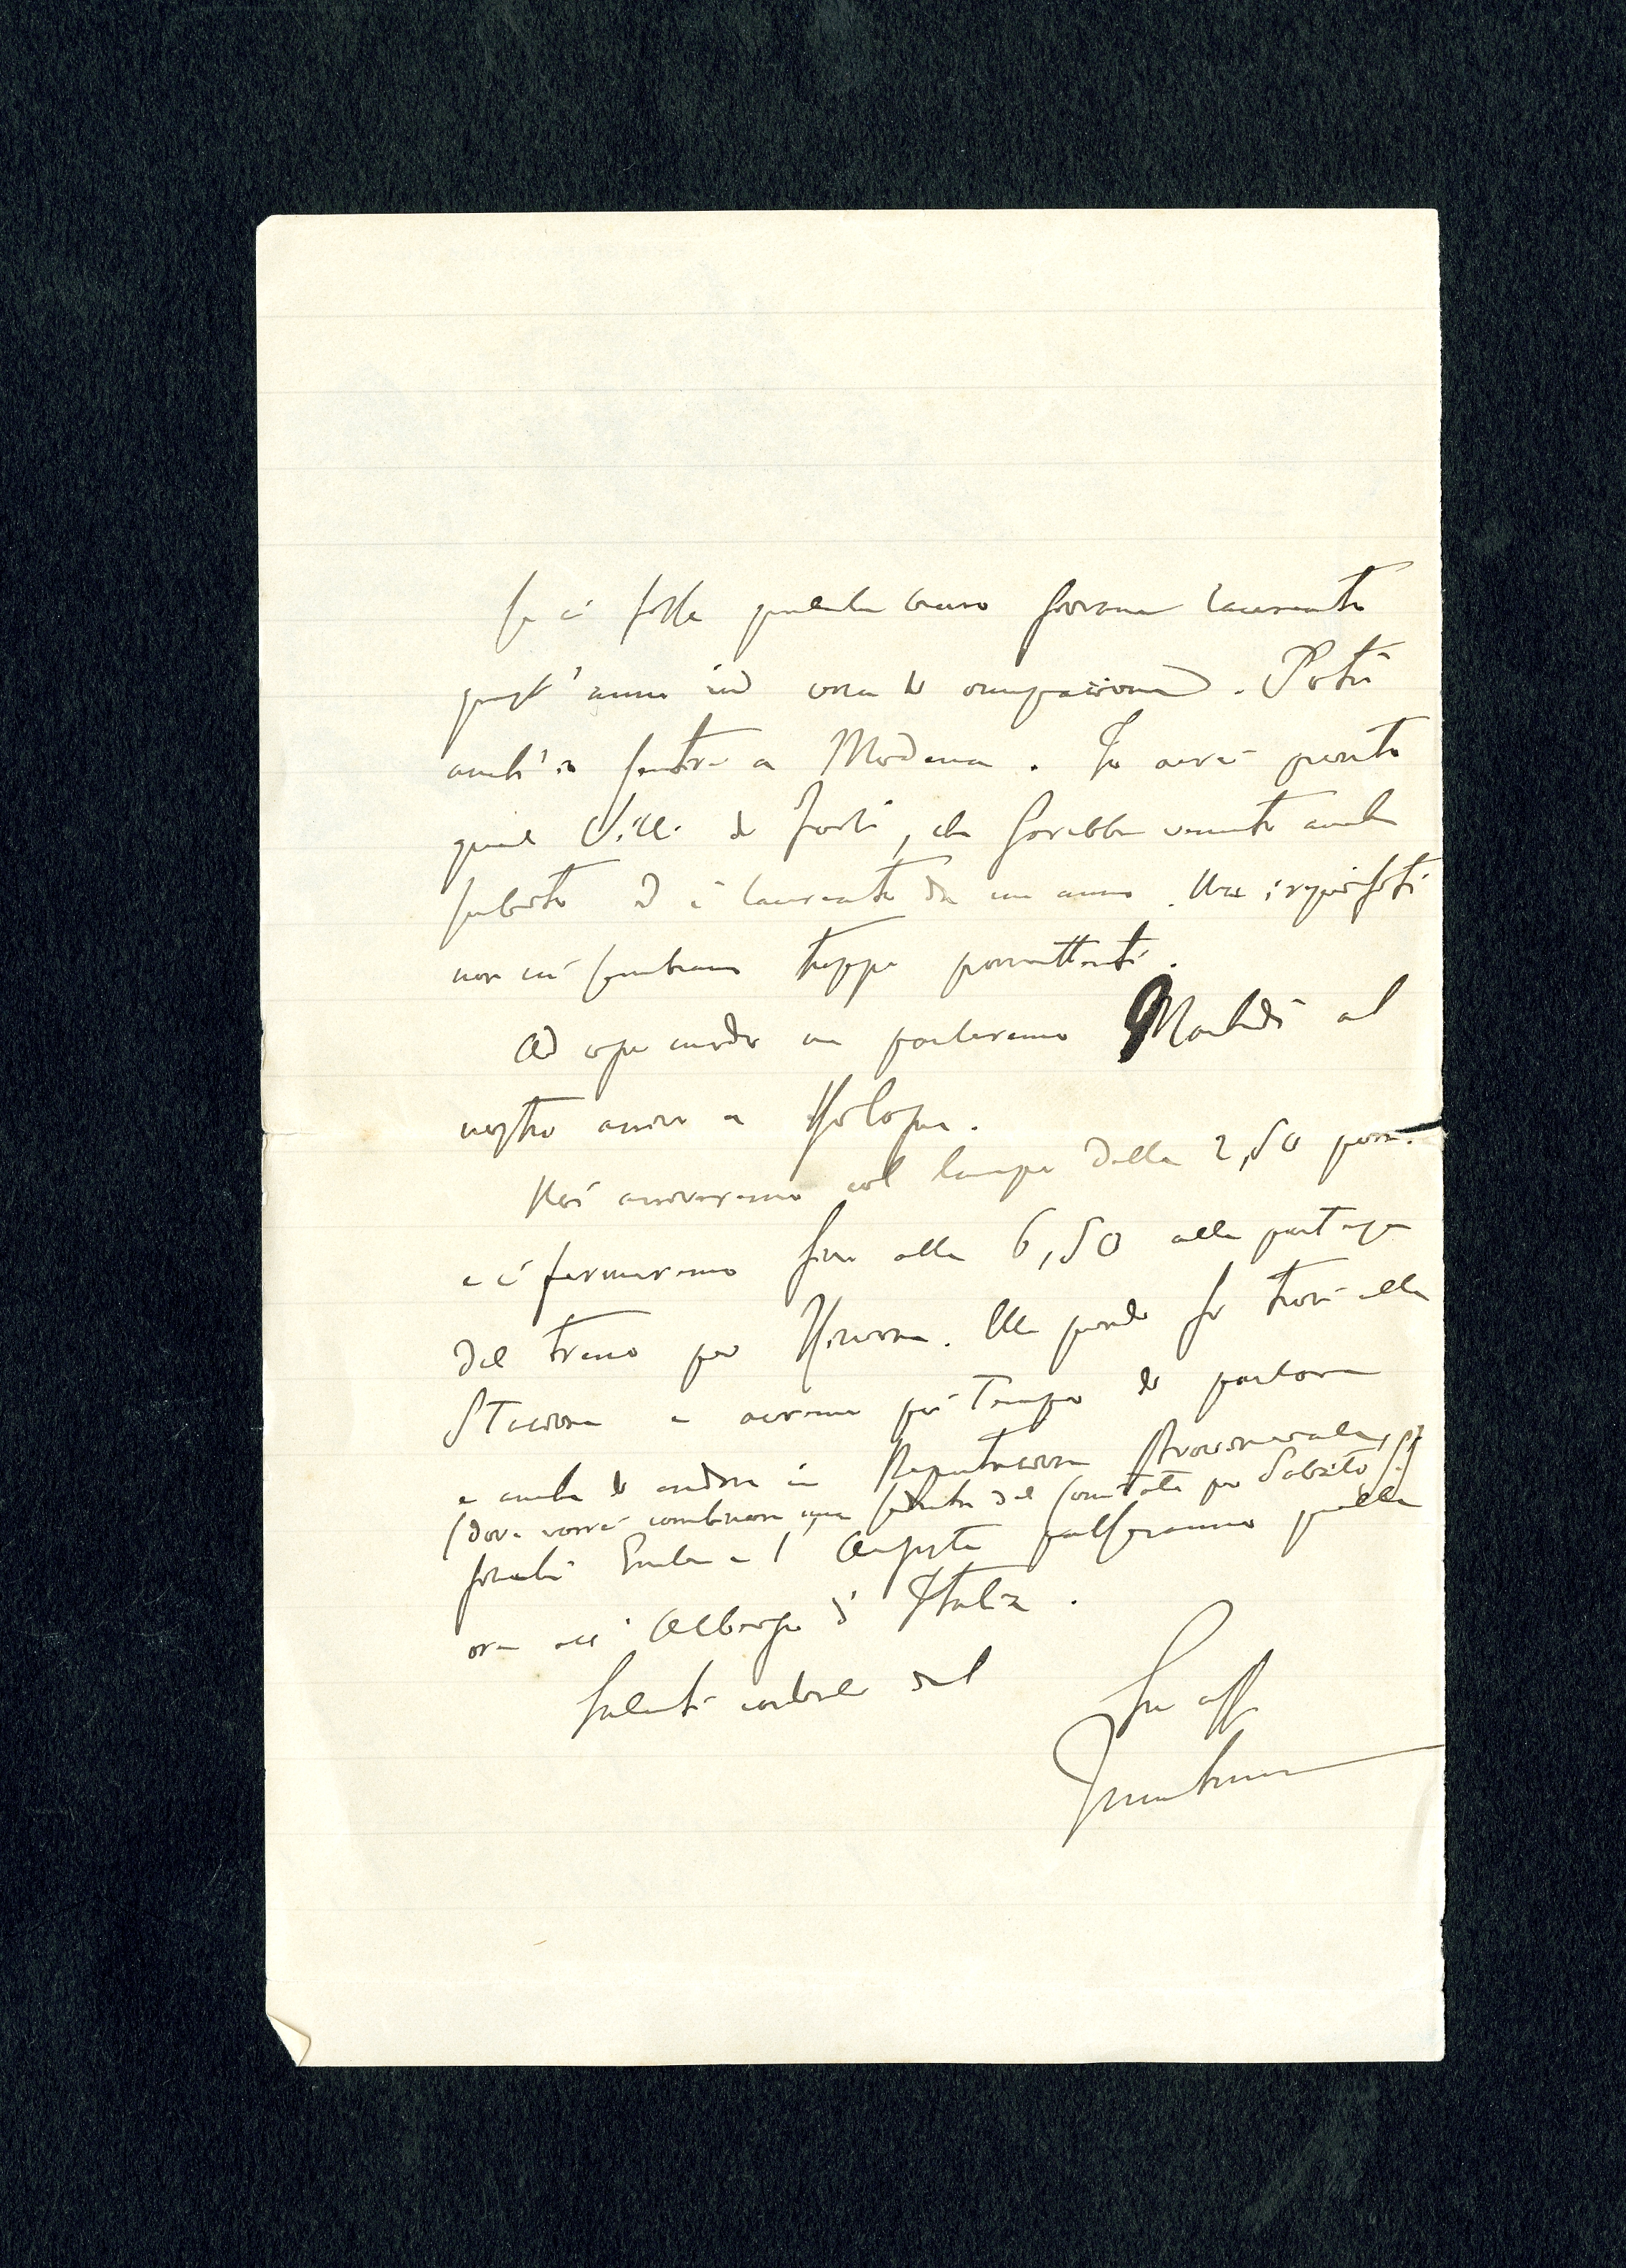 Se ci fosse qualche bravo giovane laureato
quest'anno in cerca di occupazione. Potrei
anch'io sentire a Modena. Io avrei pronto
quel Villi di Forlì, che sarebbe venuto anche
subito ed è laureato da un anno. Ma i requisiti
non mi sembrano troppo promettenti.
Ad ogni modo ne parleremo Martedì al
nostro arrivo a Bologna.
Noi arriveremo col lampo delle 2,50 pom.
e ci fermeremo fino alle 6,50 alla partenza
del treno per Verona. Ella quindi si trovi alla
Stazione e avremo più tempo di parlare
e anche di andare in Deputazione Provinciale,
(dove vorrei combinare una seduta del Comitato per Sabato)
perché Emilia e l'Augusta passeranno quelle
ore all'Albergo d'Italia.
Saluti cordiali dal
Suo aff